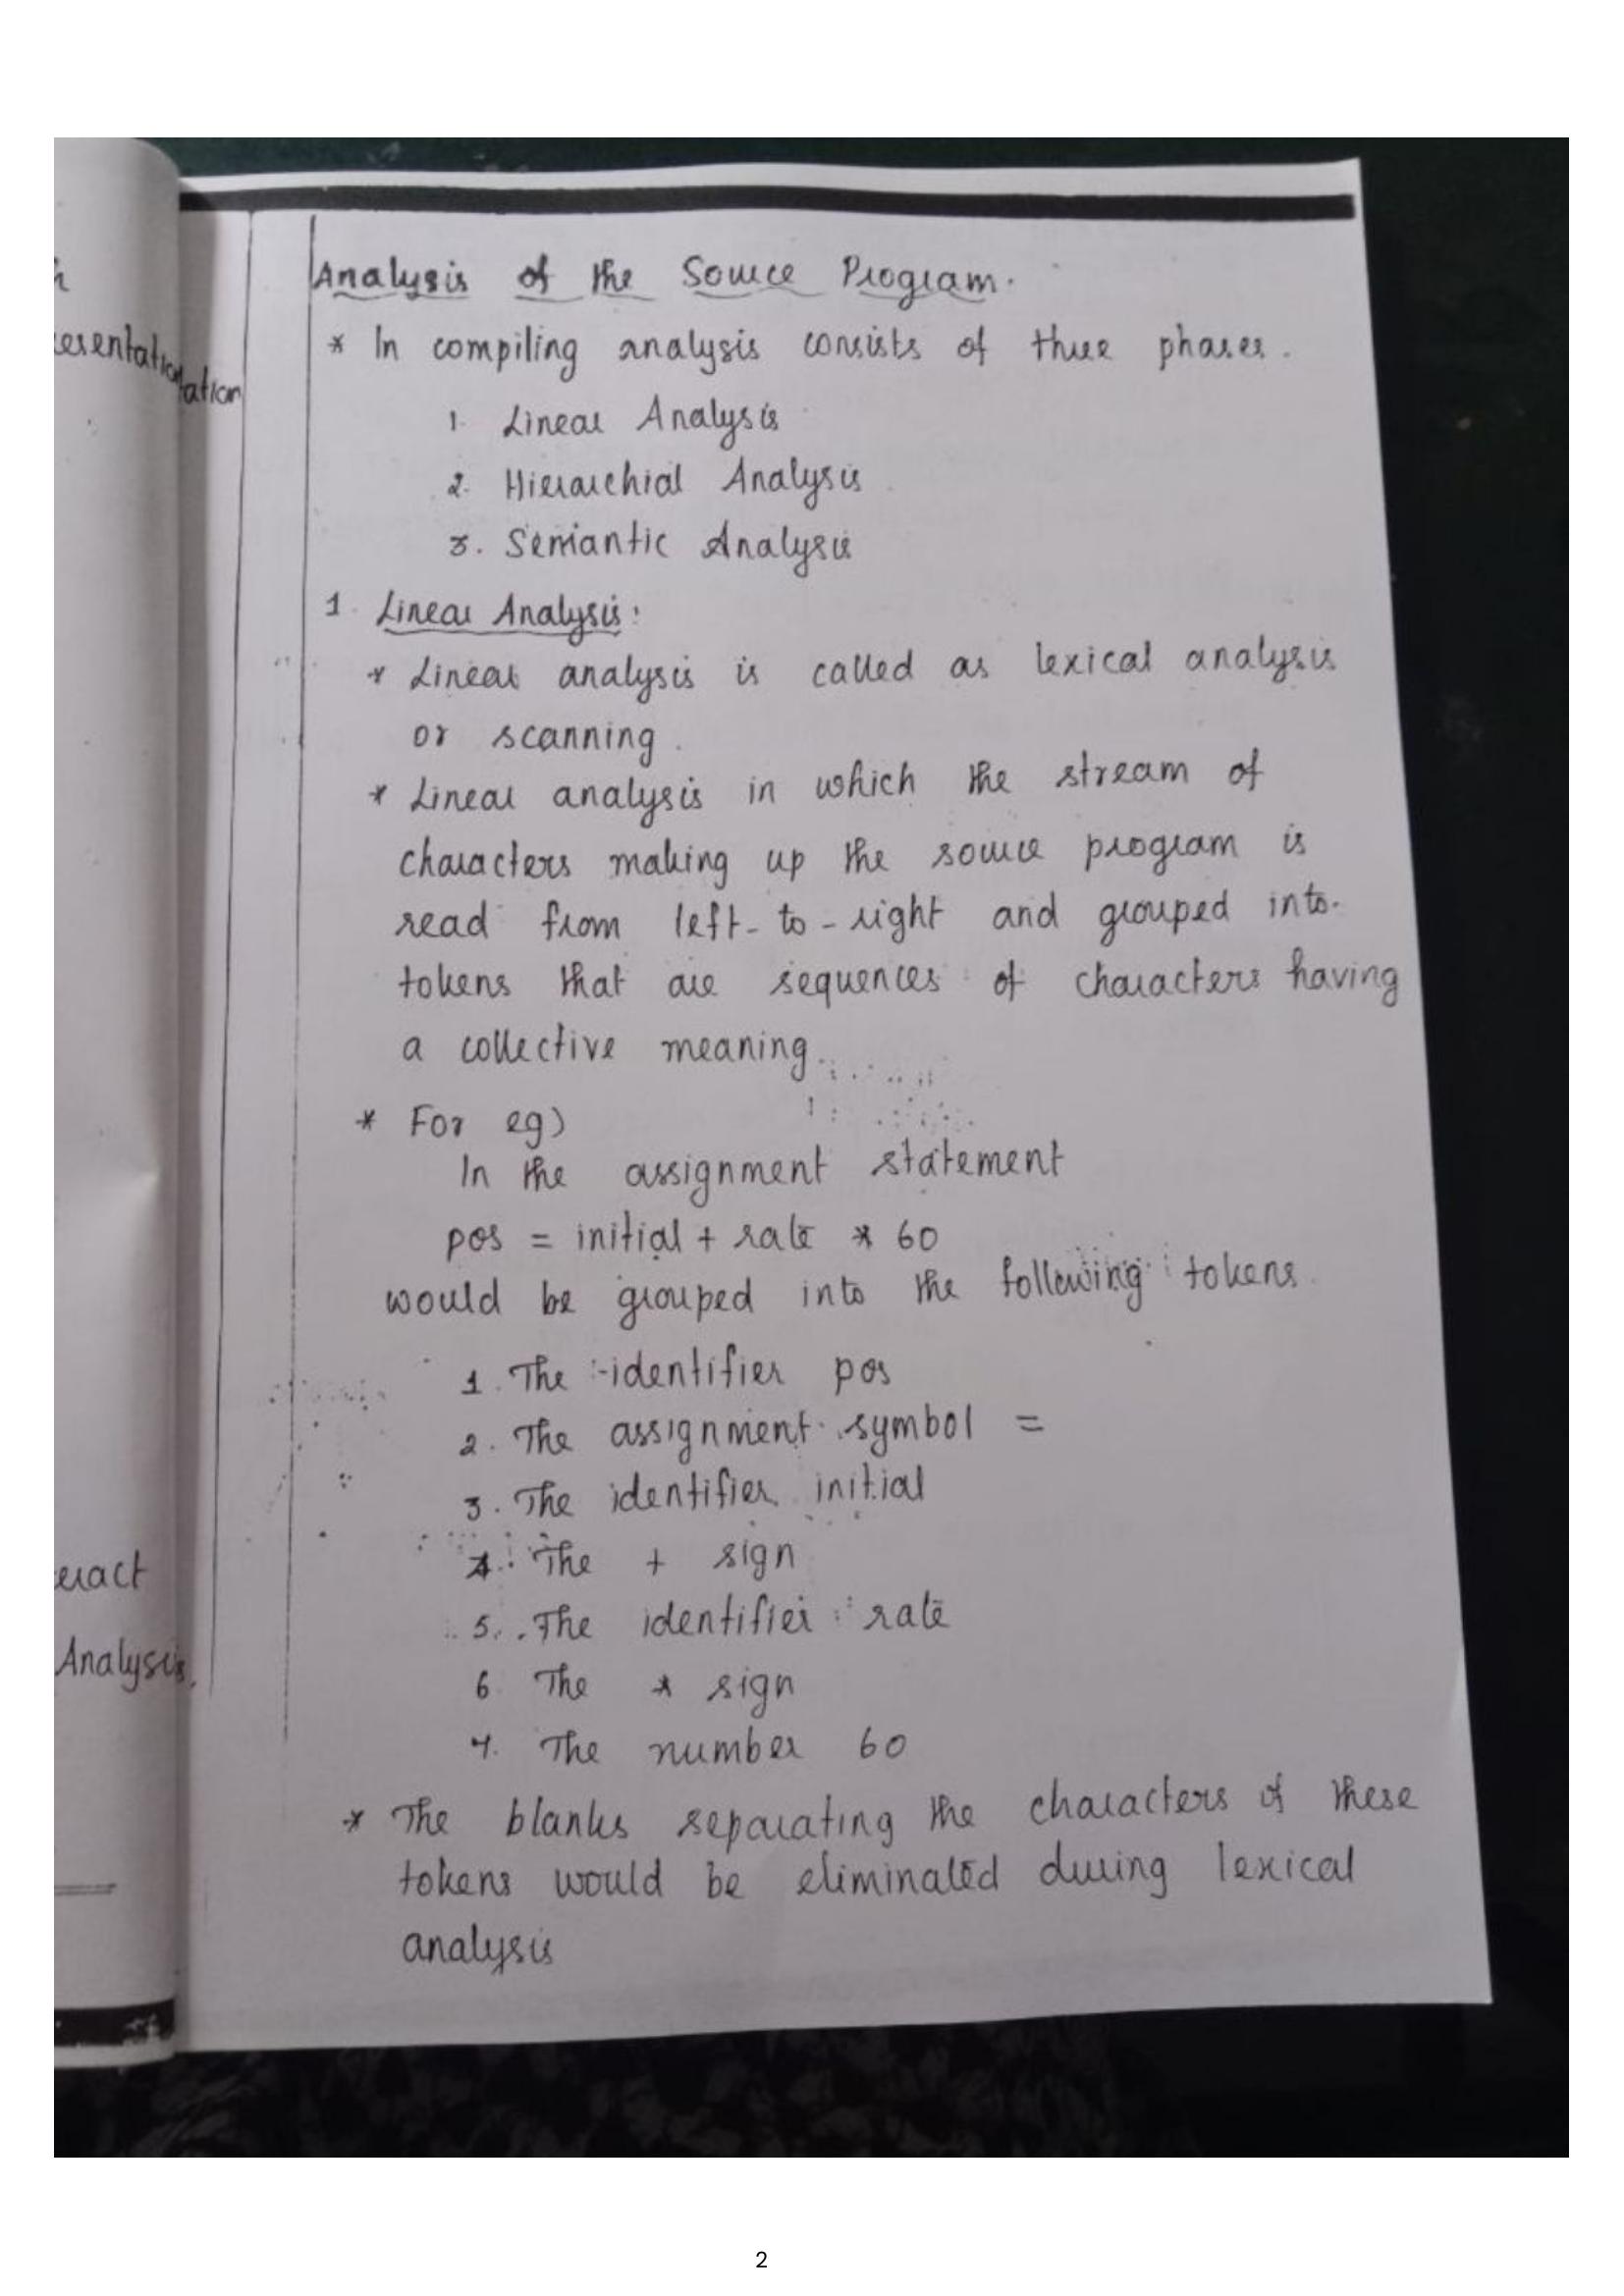 Analysis of the Source Program.
* In compiling analysis consists of three phases.
1. Linear Analysis
2. Hierarchial Analysis
3. Semantic Analysis
1. Linear Analysis:
* Linear analysis is called as lexical analysis
or scanning.
* Linear analysis in which the stream of
characters making up the source program is
read from left-to-right and grouped into
tokens that are sequences of characters having
a collective meaning.
* For eg)
In the assignment statement
pos = initial + rate * 60
would be grouped into the following tokens.
1. The identifier pos
2. The assignment symbol =
3. The identifier initial
4. The + sign
5. The identifier rate
6. The * sign
7. The number 60
* The blanks separating the characters of these
tokens would be eliminated during lexical
analysis
esentation
ation
eract
Analysis.
2